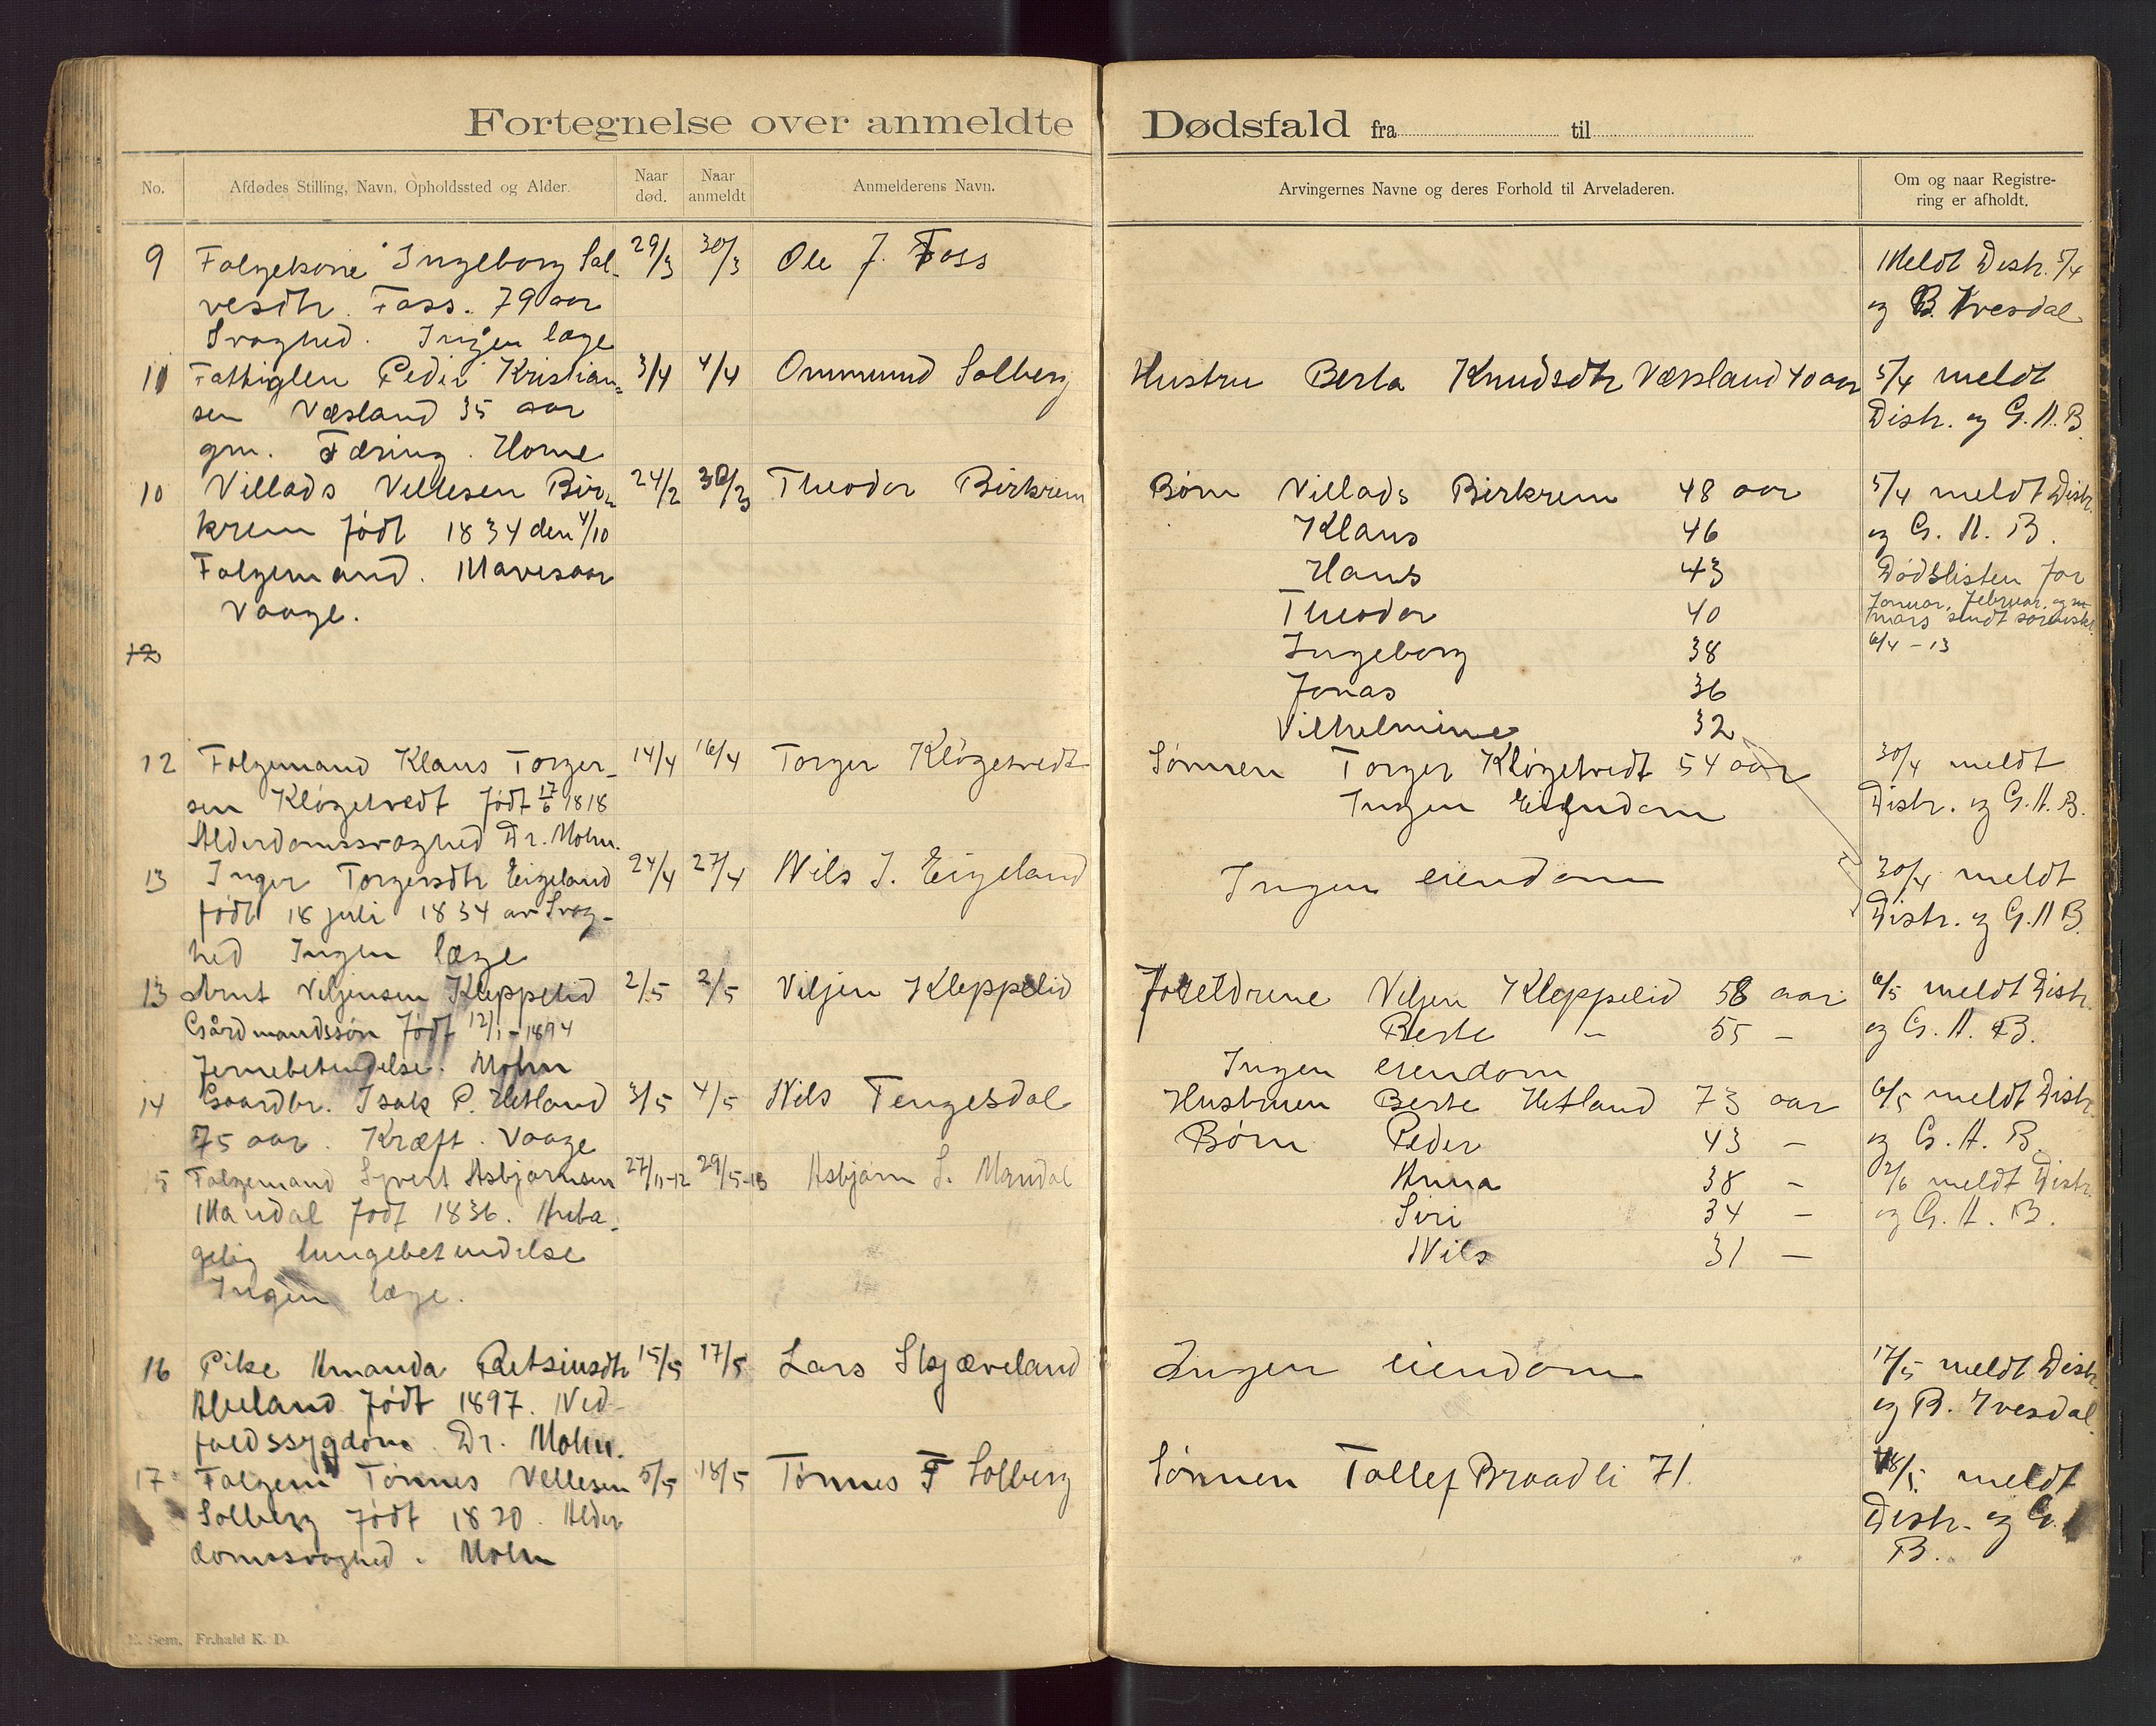 Fortegnelse over anmeldte Dødsfald fra til
No.
Afdødes Stilling, Navn, Opholdssted og Alder.
Naar død.
Naar anmeldt
Anmelderens Navn.
Arvingernes Navne og deres Forhold til Arveladeren.
Om og naar Registrering er afholdt.
9 Folgekone Ingeborg Sal- 29/3 30/3 Ole J. Foss Meldt Distr. 5/4
vesdtr. Foss. 79 aar og B. Ivesdal
Svaghed. Ingen læge
11 Fattiglem Peder Kristian= 3/4 4/4 Ommund Solberg Hustru Berta Knudsdtr Væsland 40 aar 5/4 meldt
sen Væsland 35 aar Distr. og G. A. B.
gm. Tæring. Horne
10 Villads Villesen Bir= 24/2 30/3 Theodor Birkrem Børn Villads Birkrem 48 aar 5/4 meldt Distr.
krem født 1834 den 4/10 Klaus 46 og G. A. B.
Folgemand. Mavesaar Hans 43 Dødslisten for
Vaage. Theodor 40 Januar, Februar, og
mars sendt sorenskr.
12 Ingeborg 38 6/4 - 13
Jonas 36
Vilhelmine 32
12 Folgemand Klaus Torger- 14/4 16/4 Torger Kløgetvedt Sønnen Torger Kløgetvedt 54 aar 30/4 meldt
sen Kløgetvedt født 17/6 1818 Ingen Eiendom Distr. og G. A. B.
Alderdomssvaghed Dr. Mohn.
13 Inger Torgersdtr Eigeland 24/4 27/4 Nils J. Eigeland Ingen eiendom 30/4 meldt
født 18 juli 1834 av Svag- Distr. og G. A B.
hed Ingen læge
13 Arnt Veljensen Kleppelid 2/5 2/5 Viljen Kleppelid Foreldrene Veljen Kleppelid 58 aar 6/5 meldt Distr.
Gårdmandssøn født 12/1 - 1894 Berte - 55 - og G. A. B.
Jernebetendelse. Mohn Ingen eiendom
14 Gaardbr. Isak P. Hetland 3/5 4/5 Nils Tengesdal Hustruen Berte Hetland 73 aar 6/5 meldt Distr.
75 aar. Kræft. Vaage Børn Peder 43 - og G. A. B.
5 Folgemand Sivert Asbjørnsen 27/11-12 29/5-13 Asbjørn S. Mandal Anna 38 - 2/6 meldt Distr.
Mandal født 1836. Anta- Siri 34 - og G. A. B.
gelig lungebetendelse Nils 31 -
Ingen læge.
16 Pike Amanda Retsiusdtr 15/5 17/5 Lars Skjæveland Ingen eiendom 17/5 meldt Distr.
Abeland født 1897. Ned- og B. Ivesdal
faldssygdom. Dr. Mohn.
17 Folgem Tønnes Vellesen 5/5 18/5 Tønnes T Solberg Sønnen Tollef Braadli 71. 18/5 meldt
Solberg født 1820. Alder Distr. og G.
domssvaghed. Mohn B.
E. Sem, Fr.hald K. D.